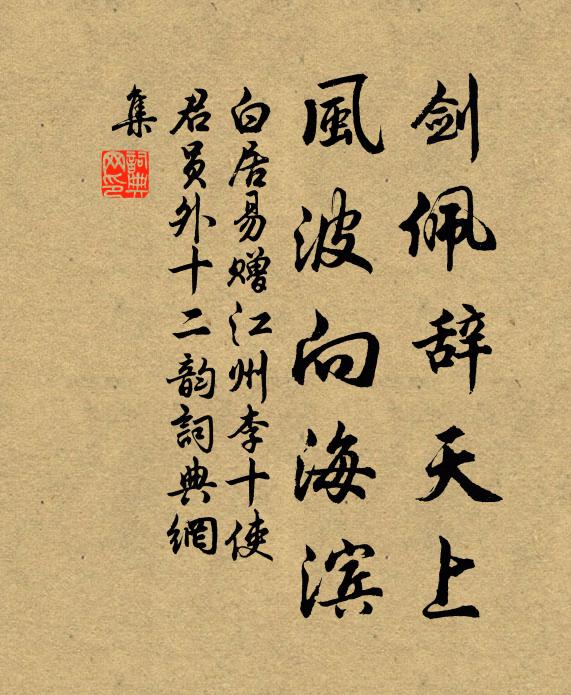 剑佩辞天上
風波向海滨
白居易赠江州李十使
君员外十二韵詞典網
集
詞典
网印